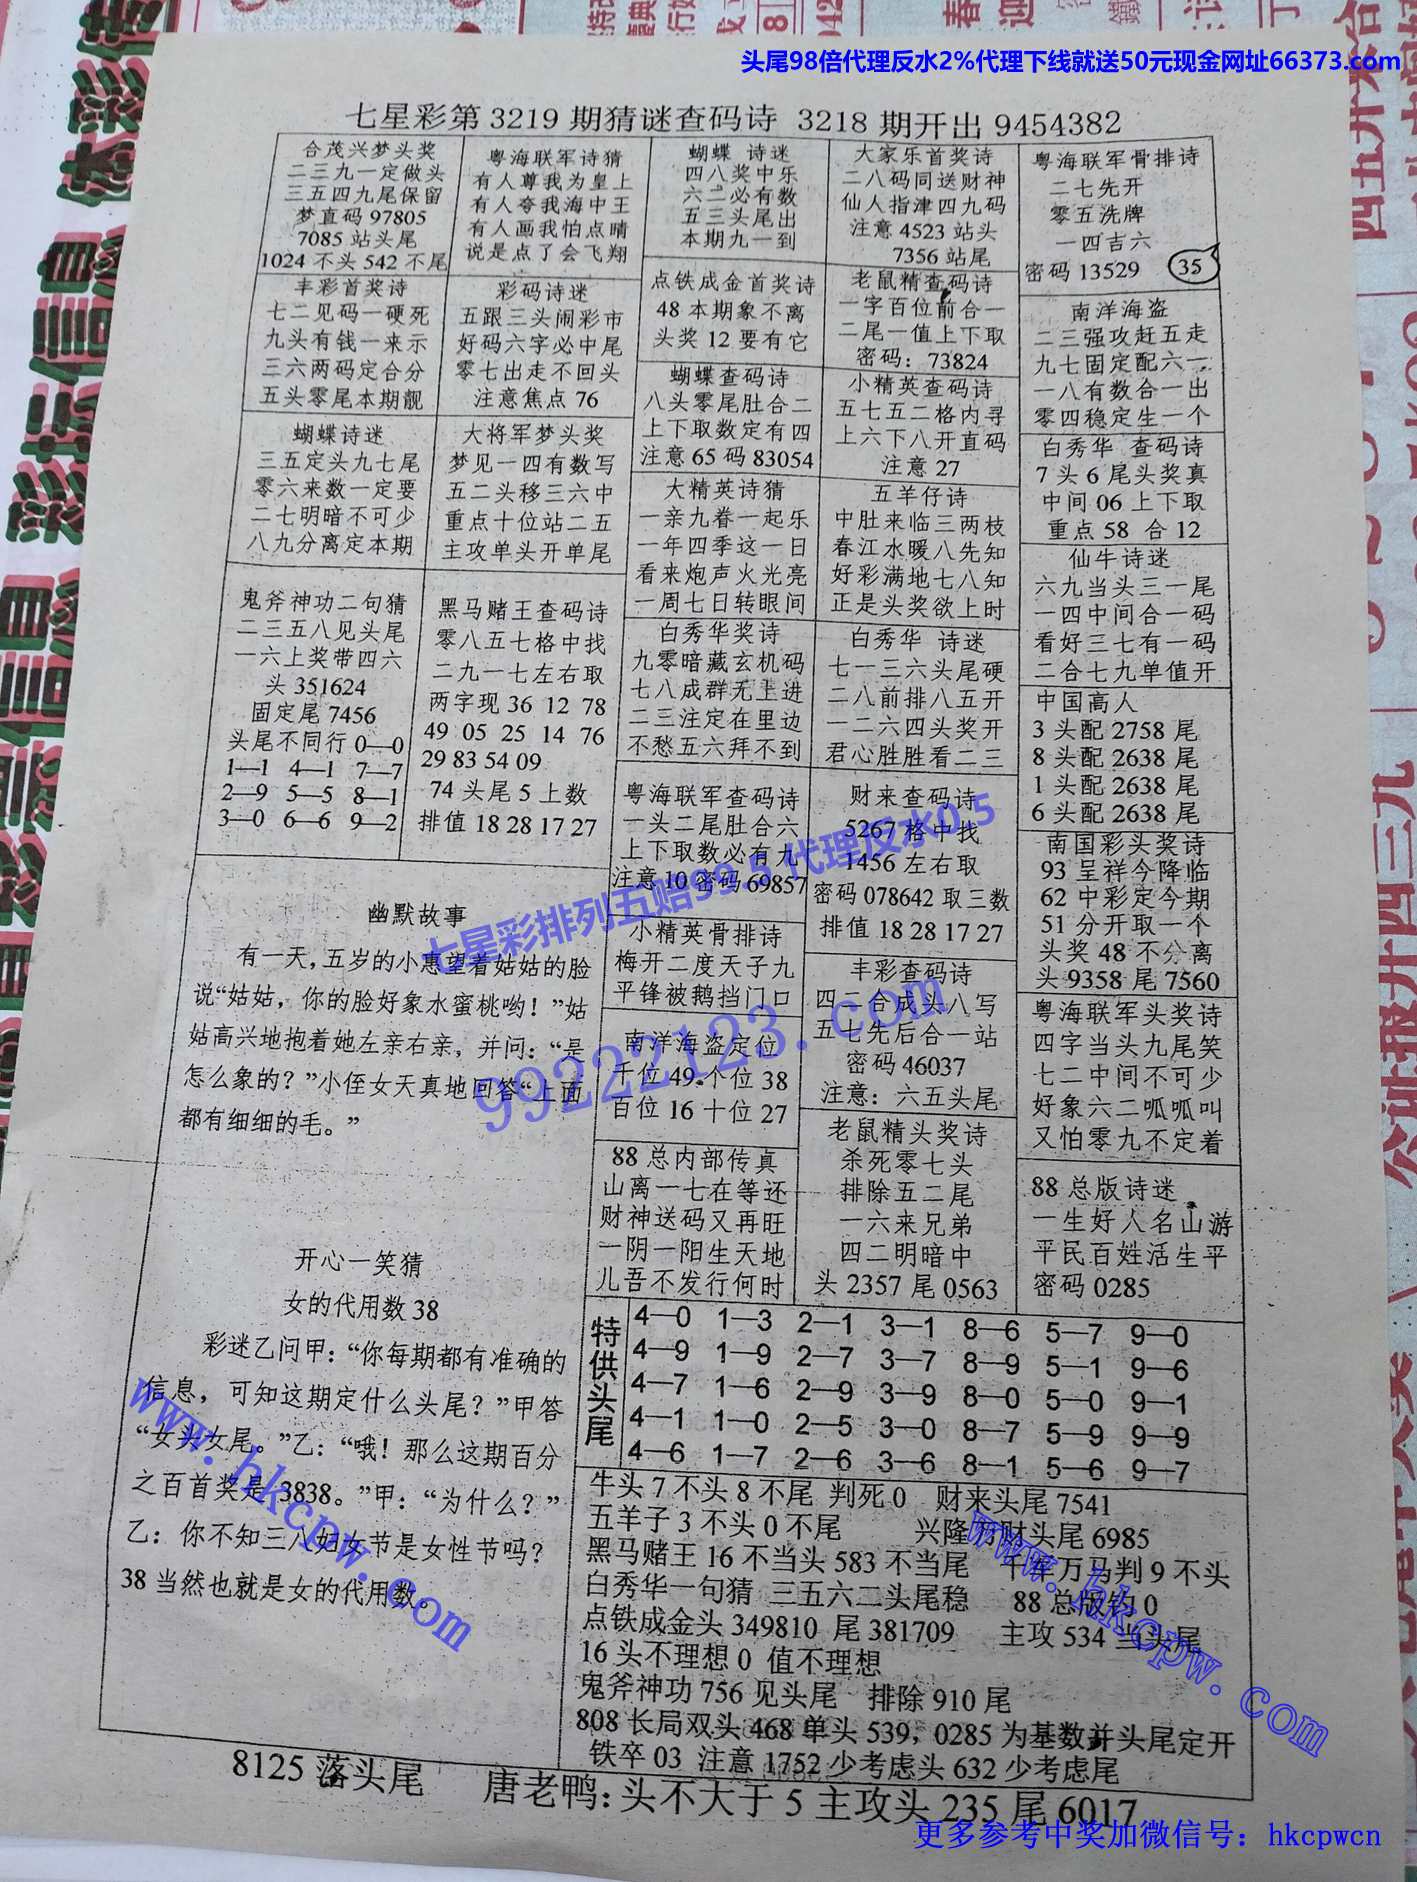 头尾98倍代理反水2%代理下线就送50元现金网址66373.com
七星彩第3219期猜谜查码诗 3218期开出9454382
合茂兴梦头奖
二三九一定做头
三五四九尾保留
梦直码97805
7085站头尾
1024不头542不尾
丰彩首奖诗
七二见码一硬死
九头有钱一来示
三六两码定合分
五头零尾本期靓
蝴蝶诗迷
三五定头九七尾
零六来数一定要
二七明暗不可少
八九分离定本期
鬼斧神功二句猜
二三五八见头尾
一六上奖带四六
头351624
固定尾7456
头尾不同行0—0
1—1 4—1 7—7
2—9 5—5 8—1
3—0 6—6 9—2
粤海联军诗猜
有人尊我为皇上
有人夸我海中王
有人画我怕点睛
说是点了会飞翔
彩码诗迷
五跟三头闹彩市
好码六字必中尾
零七出走不回头
注意焦点76
大将军梦头奖
梦见一四有数写
五二头移三六中
重点十位站二五
主攻单头开单尾
黑马赌王查码诗
零八五七格中找
二九一七左右取
两字现36 12 78
49 05 25 14 76
29 83 54 09
74头尾5上数
排值18 28 17 27
蝴蝶 诗迷
四八奖中乐
六二必有数
五三头尾出
本期九一到
点铁成金首奖诗
48本期象不离
头奖12要有它
蝴蝶查码诗
八头零尾肚合二
上下取数定有四
注意65码83054
大精英诗猜
一亲九眷一起乐
一年四季这一日
看来炮声火光亮
一周七日转眼间
白秀华奖诗
九零暗藏玄机码
七八成群无上进
二三注定在里边
不愁五六拜不到
粤海联军查码诗
一头二尾肚合六
上下取数必有九
注意10密码69857
小精英骨排诗
梅开二度天子九
平锋被鹅挡门口
南洋海盗定位
千位49个位38
百位16十位27
88总内部传真
山离一七在等还
财神送码又再旺
一阴一阳生天地
儿吾不发行何时
大家乐首奖诗
二八码同送财神
仙人指津四九码
注意4523站头
7356站尾
老鼠精查码诗
一字百位前合一
二尾一值上下取
密码：73824
小精英查码诗
五七五二格内寻
上六下八开直码
注意27
五羊仔诗
中肚来临三两枝
春江水暖八先知
好彩满地七八知
正是头奖欲上时
白秀华 诗迷
七一三六头尾硬
二八前排八五开
一二六四头奖开
君心胜胜看二三
财来查码诗
5267格中找
1456左右取
密码078642取三数
排值18 28 17 27
丰彩查码诗
四二合成头八写
五七先后合一站
密码46037
注意：六五头尾
老鼠精头奖诗
杀死零七头
排除五二尾
一六来兄弟
四二明暗中
头2357尾0563
粤海联军骨排诗
二七先开
零五洗牌
一四吉六
密码13529
35
南洋海盗
二三强攻赶五走
九七固定配六一
一八有数合一出
零四稳定生一个
白秀华 查码诗
7头6尾头奖真
中间06上下取
重点58 合12
仙牛诗迷
六九当头三一尾
一四中间合一码
看好三七有一码
二合七九单值开
中国高人
3头配2758尾
8头配2638尾
1头配2638尾
6头配2638尾
南国彩头奖诗
93呈祥今降临
62中彩定今期
51分开取一个
头奖48不分离
头9358尾7560
粤海联军头奖诗
四字当头九尾笑
七二中间不可少
好象六二呱呱叫
又怕零九不定着
88总版诗迷
一生好人名山游
平民百姓活生平
密码0285
幽默故事
有一天，五岁的小惠望着姑姑的脸
说“姑姑，你的脸好象水蜜桃哟！”姑
姑高兴地抱着她左亲右亲，并问：“是
怎么象的？”小侄女天真地回答“上面
都有细细的毛。”
开心一笑猜
女的代用数38
彩迷乙问甲：“你每期都有准确的
信息，可知这期定什么头尾？”甲答
“女头女尾。”乙：“哦！那么这期百分
之百首奖是3838。”甲：“为什么？”
乙：你不知三八妇女节是女性节吗？
38当然也就是女的代用数。
特供头尾
4—0 1—3 2—1 3—1 8—6 5—7 9—0
4—9 1—9 2—7 3—7 8—9 5—1 9—6
4—7 1—6 2—9 3—9 8—0 5—0 9—1
4—1 1—0 2—5 3—0 8—7 5—9 9—9
4—6 1—7 2—6 3—6 8—1 5—6 9—7
牛头7不头8不尾 判死0 财来头尾7541
五羊子3不头0不尾 兴隆万财头尾6985
黑马赌王16不当头583不当尾 千军万马判9不头
白秀华一句猜 三五六二头尾稳 88总版钓0
点铁成金头349810 尾381709 主攻534当头尾
16头不理想0 值不理想
鬼斧神功756见头尾 排除910尾
808长局双头468单头539，0285为基数并头尾定开
铁卒03 注意1752少考虑头632少考虑尾
8125落头尾 唐老鸭：头不大于5主攻头235尾6017
七星彩排列五赔99.5 代理反水0.5
99222123.com
www.hkcpw.com
www.hkcpw.com
更多参考中奖加微信号：hkcpwcn